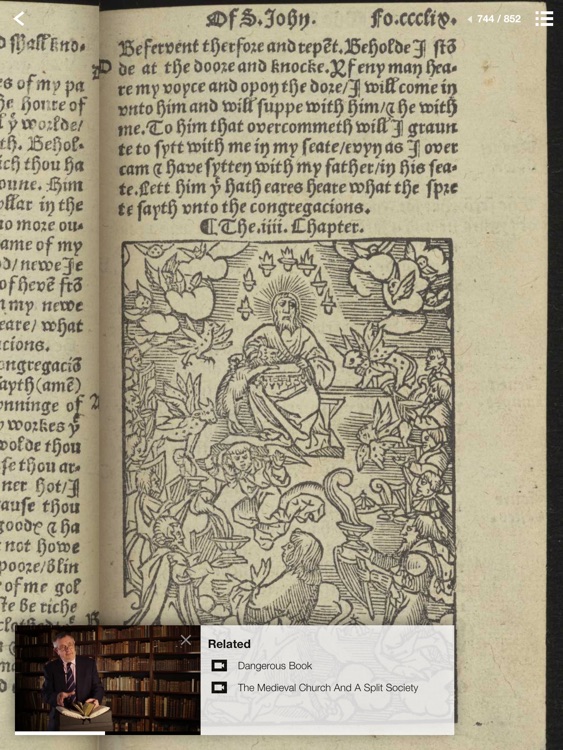 744 / 852
d shall kno-
es of my pa
he houre of
l ẏ worlde/
th. Behol-
ich thou ha
oune. Him
yllar in the
no more ou-
ame of my
od/ newe Je
of hevē frō
n my newe
eare/ what
cions.
ongregaciō
ayth (amē)
onninge of
y workes ẏ
wolde thou
se thou ar-
ner hot/ I
ause thou
goodꝭ ⁊ ha
not howe
poore/ blin
of me gol
te be riche
Of S. John. Fo. ccclix.
Be fervent therfore and repēt. Beholde I stō
de at the doore and knocke. Yf eny man hea-
re my voyce and opon the dore/ I will come in
vnto him and will suppe with him/ ⁊ he with
me. To him that overcommeth will I graun
te to sytt with me in my seate/ evyn as I over
cam ⁊ have sytten with my father/ in his sea-
te. Lett him ẏ hath eares heare what the spre
te sayth vnto the congregacions.
¶ The .iiii. Chapter.
Related
Dangerous Book
The Medieval Church And A Split Society